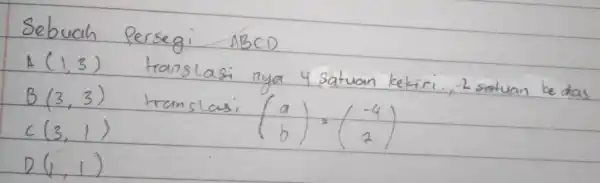 Sebuah Persegi ABCD
A (1, 3) translasi nya 4 satuan kekiri, 2 satuan ke atas
B (3, 3) translasi (a b) = (-4 2)
C (3, 1)
D (1, 1)